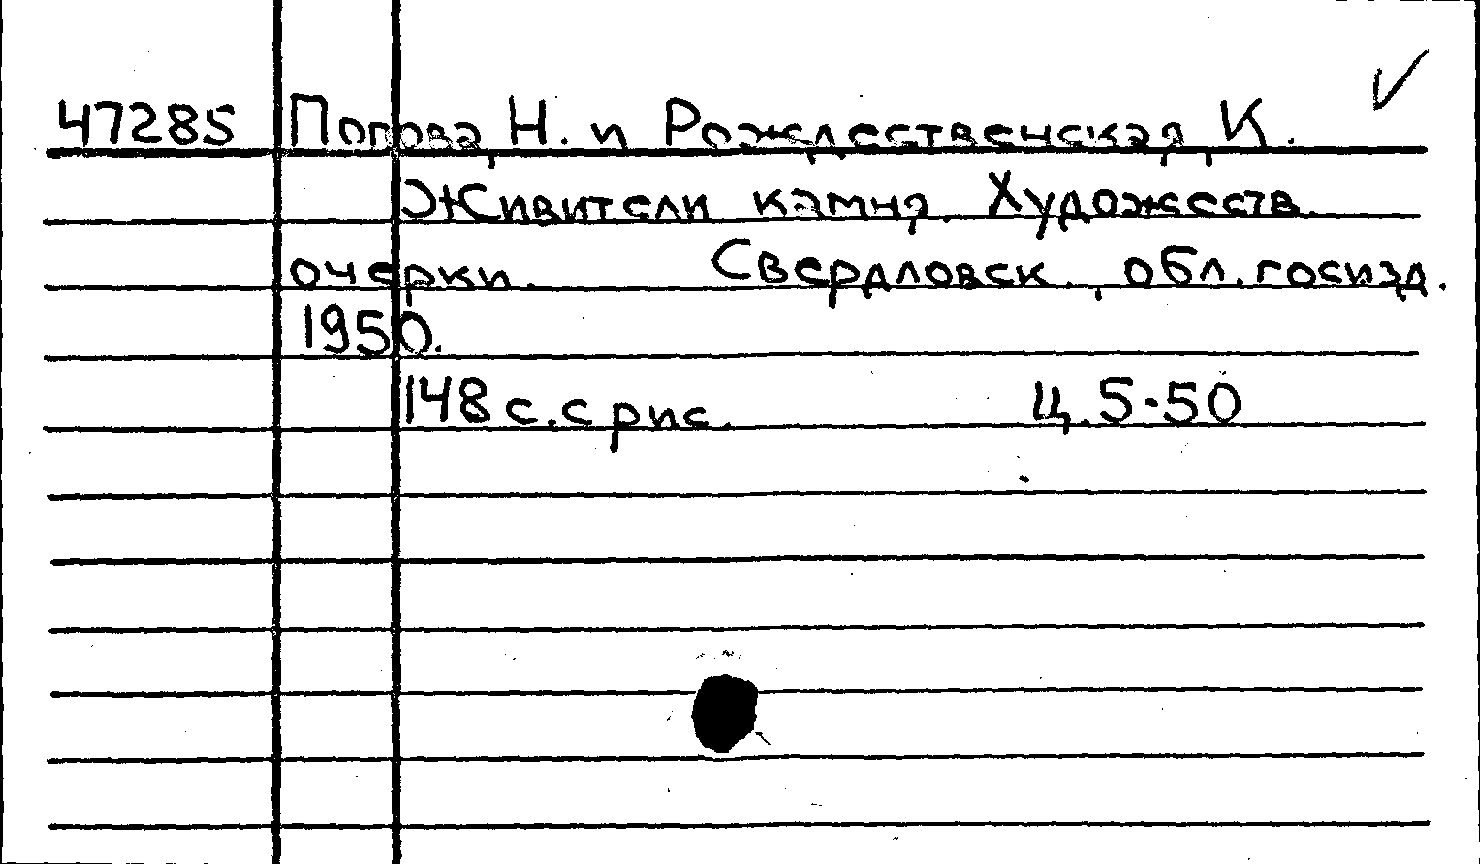 47285 Попова, Н. и Рождественская, К.
Живители камня. Художеств.
очерки. Свердловск, обл. госизд.
1950.
148 с. с рис. Ц. 5-50